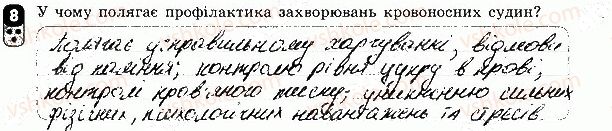 8 У чому полягає профілактика захворювань кровоносних судин?
Полягає у правильному харчуванні, відмові
від паління; контролю рівня цукру в крові;
контролю кров'яного тиску; уникненню сильних
фізичних, психологічних навантажень та стресів.